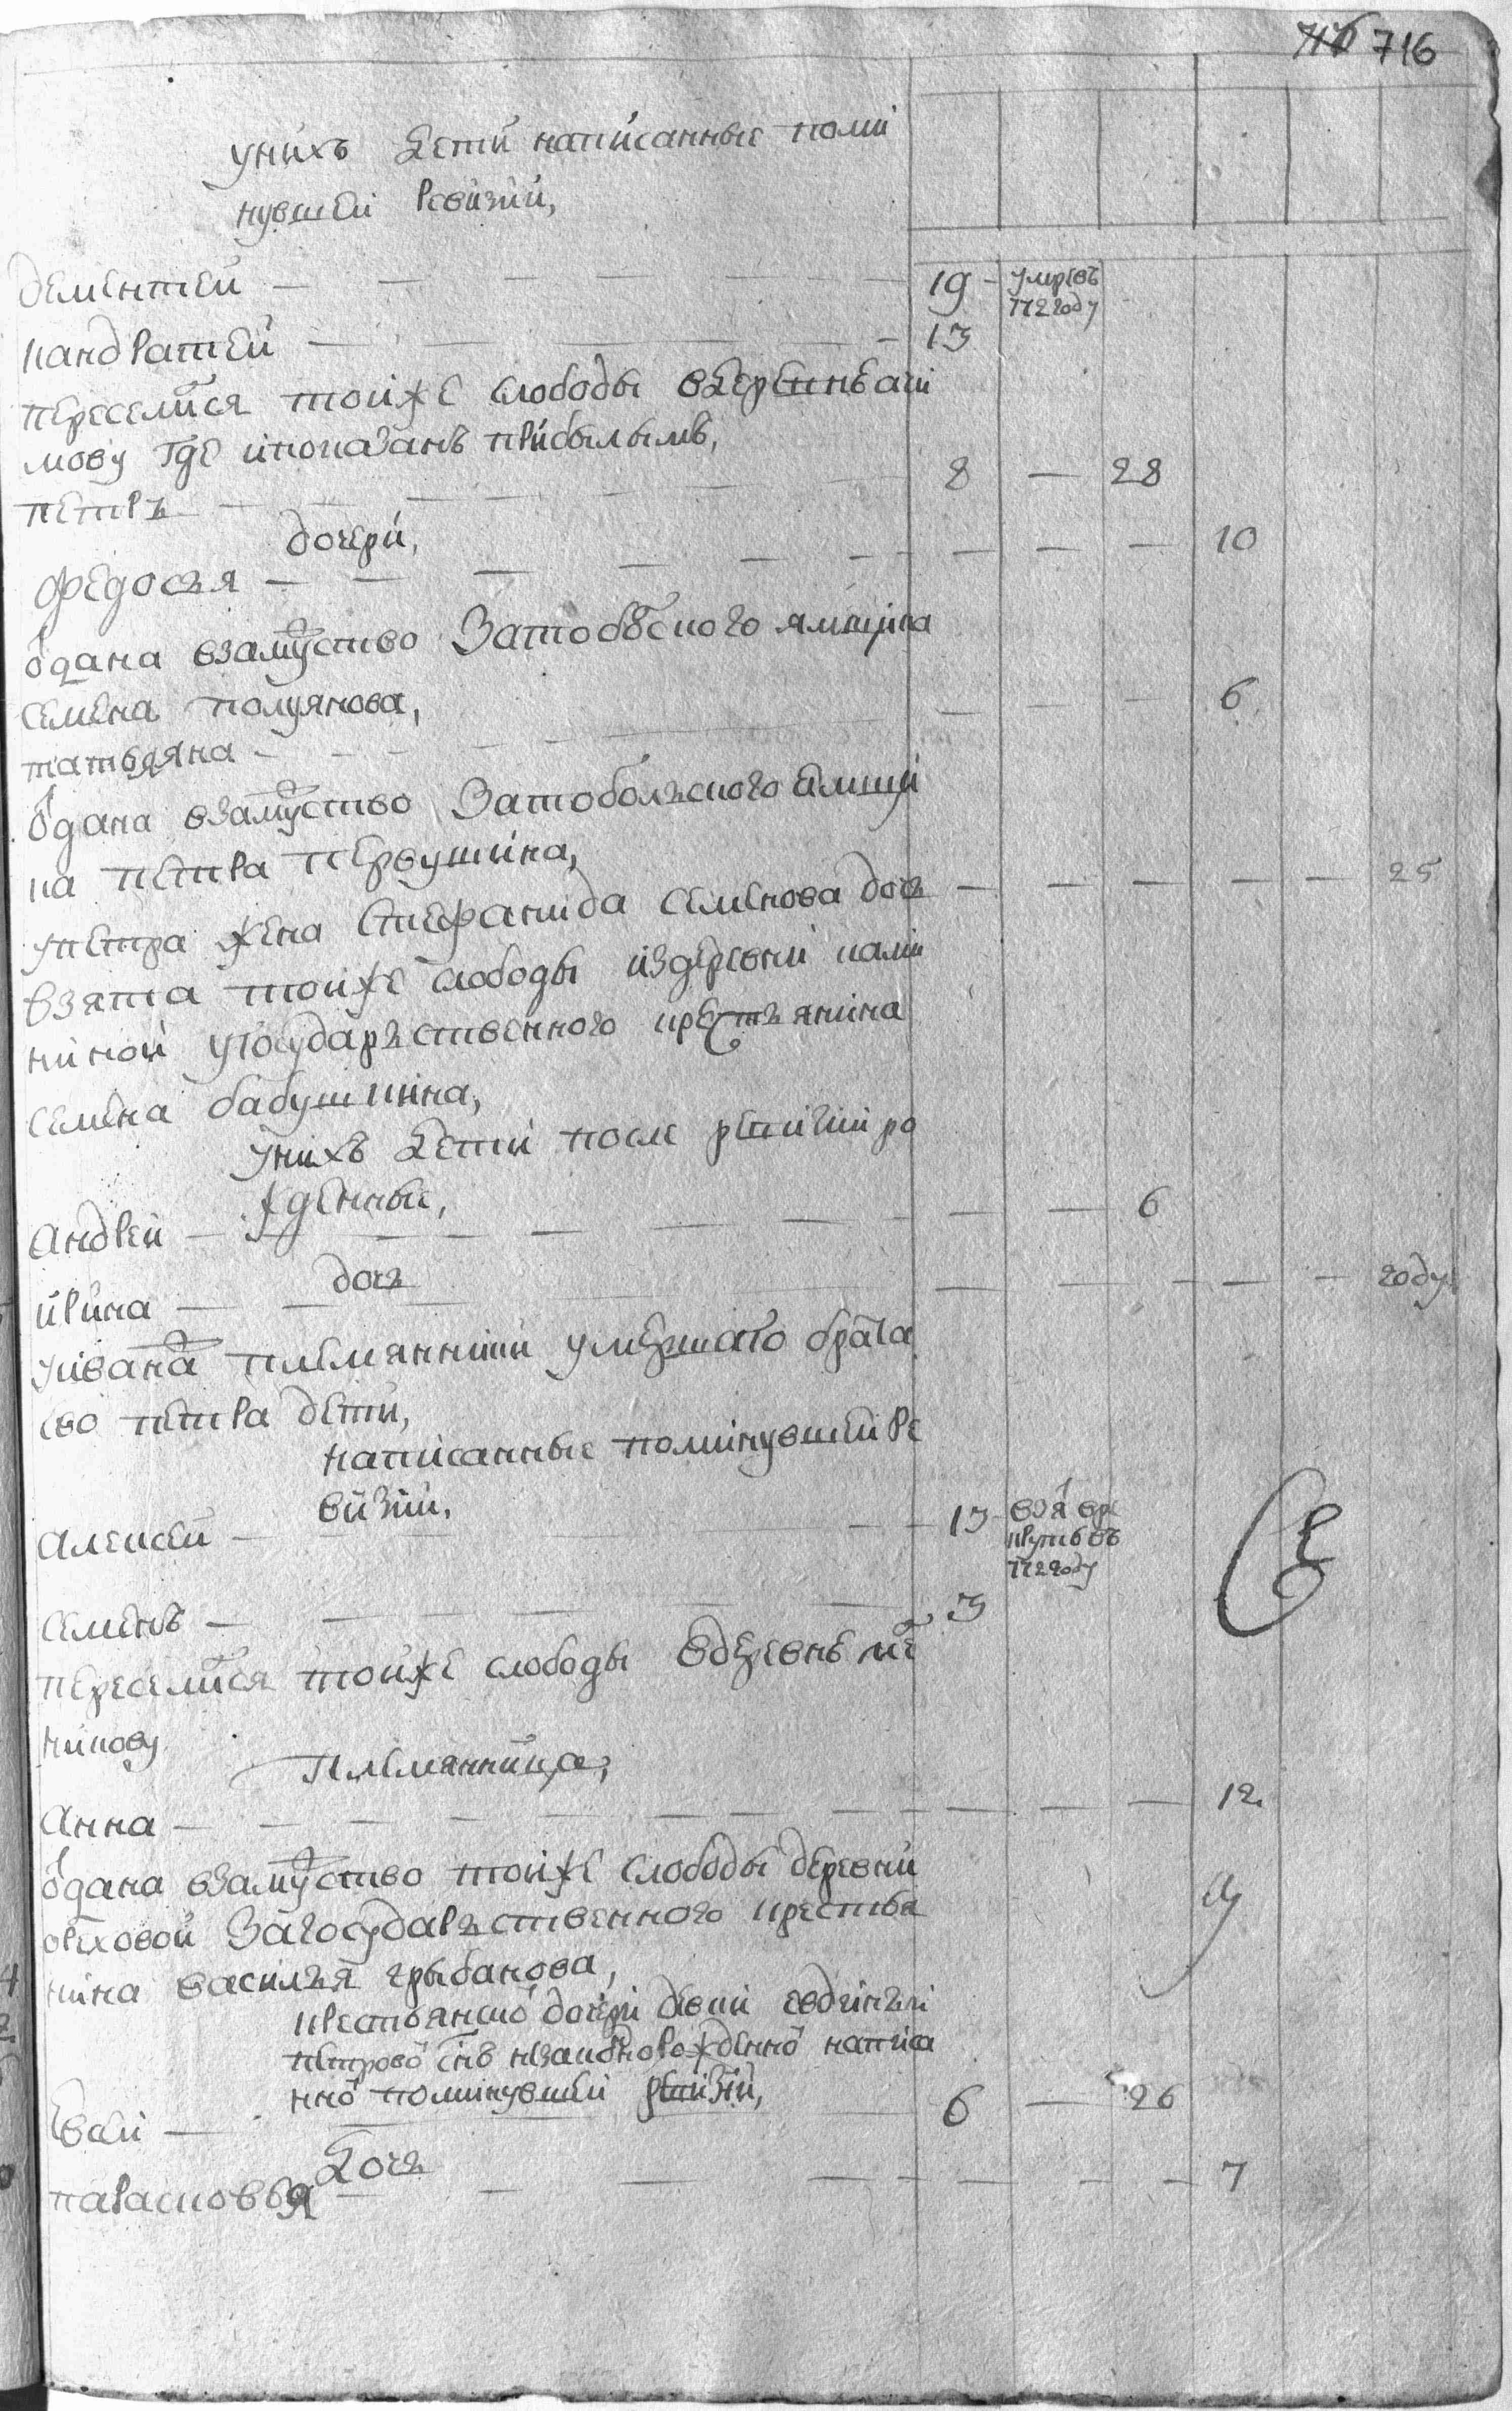 716
унихъ дети написанные поми
нувшеи ревизии,
дементеи — 19 — умре въ
772 году
кандратеи — 13
переселился тоиже слободы вдеревню аки
мову где ипоказанъ прибылымъ,
петръ — 8 — 28
дочери,
федосья — 10
одана взамуство Затобольского ямщика
семена полуянова,
татьяна — 6
одана взамуство Затобольского ямщи
ка петра первушина,
упетра жена Стефанида семенова дочь — 25
взята тоиже слободы издеревни кали
ниной угосударственного крестьянина
семена бабушкина,
унихъ дети после ревизии ро
жденные,
андреи — 6
дочь
ирина — году
уивана племянники умершаго брата
ево петра дети,
написанные поминувшеи ре
визии,
алексеи — 13 взя в ре
круты въ
772 году
семенъ — 3
переселился тоиже слободы вдеревню
никову
племянница,
анна — 12
одана взамуство тоиже слободы деревни
ореховои Загосударственного крестья
нина василья грыбанова,
крестьянскои дочери девки евдокеи
петровои снъ незаконорожденнои написа
ннои поминувшеи ревизии,
иван — 6 — 26
дочь
парасковья — 7